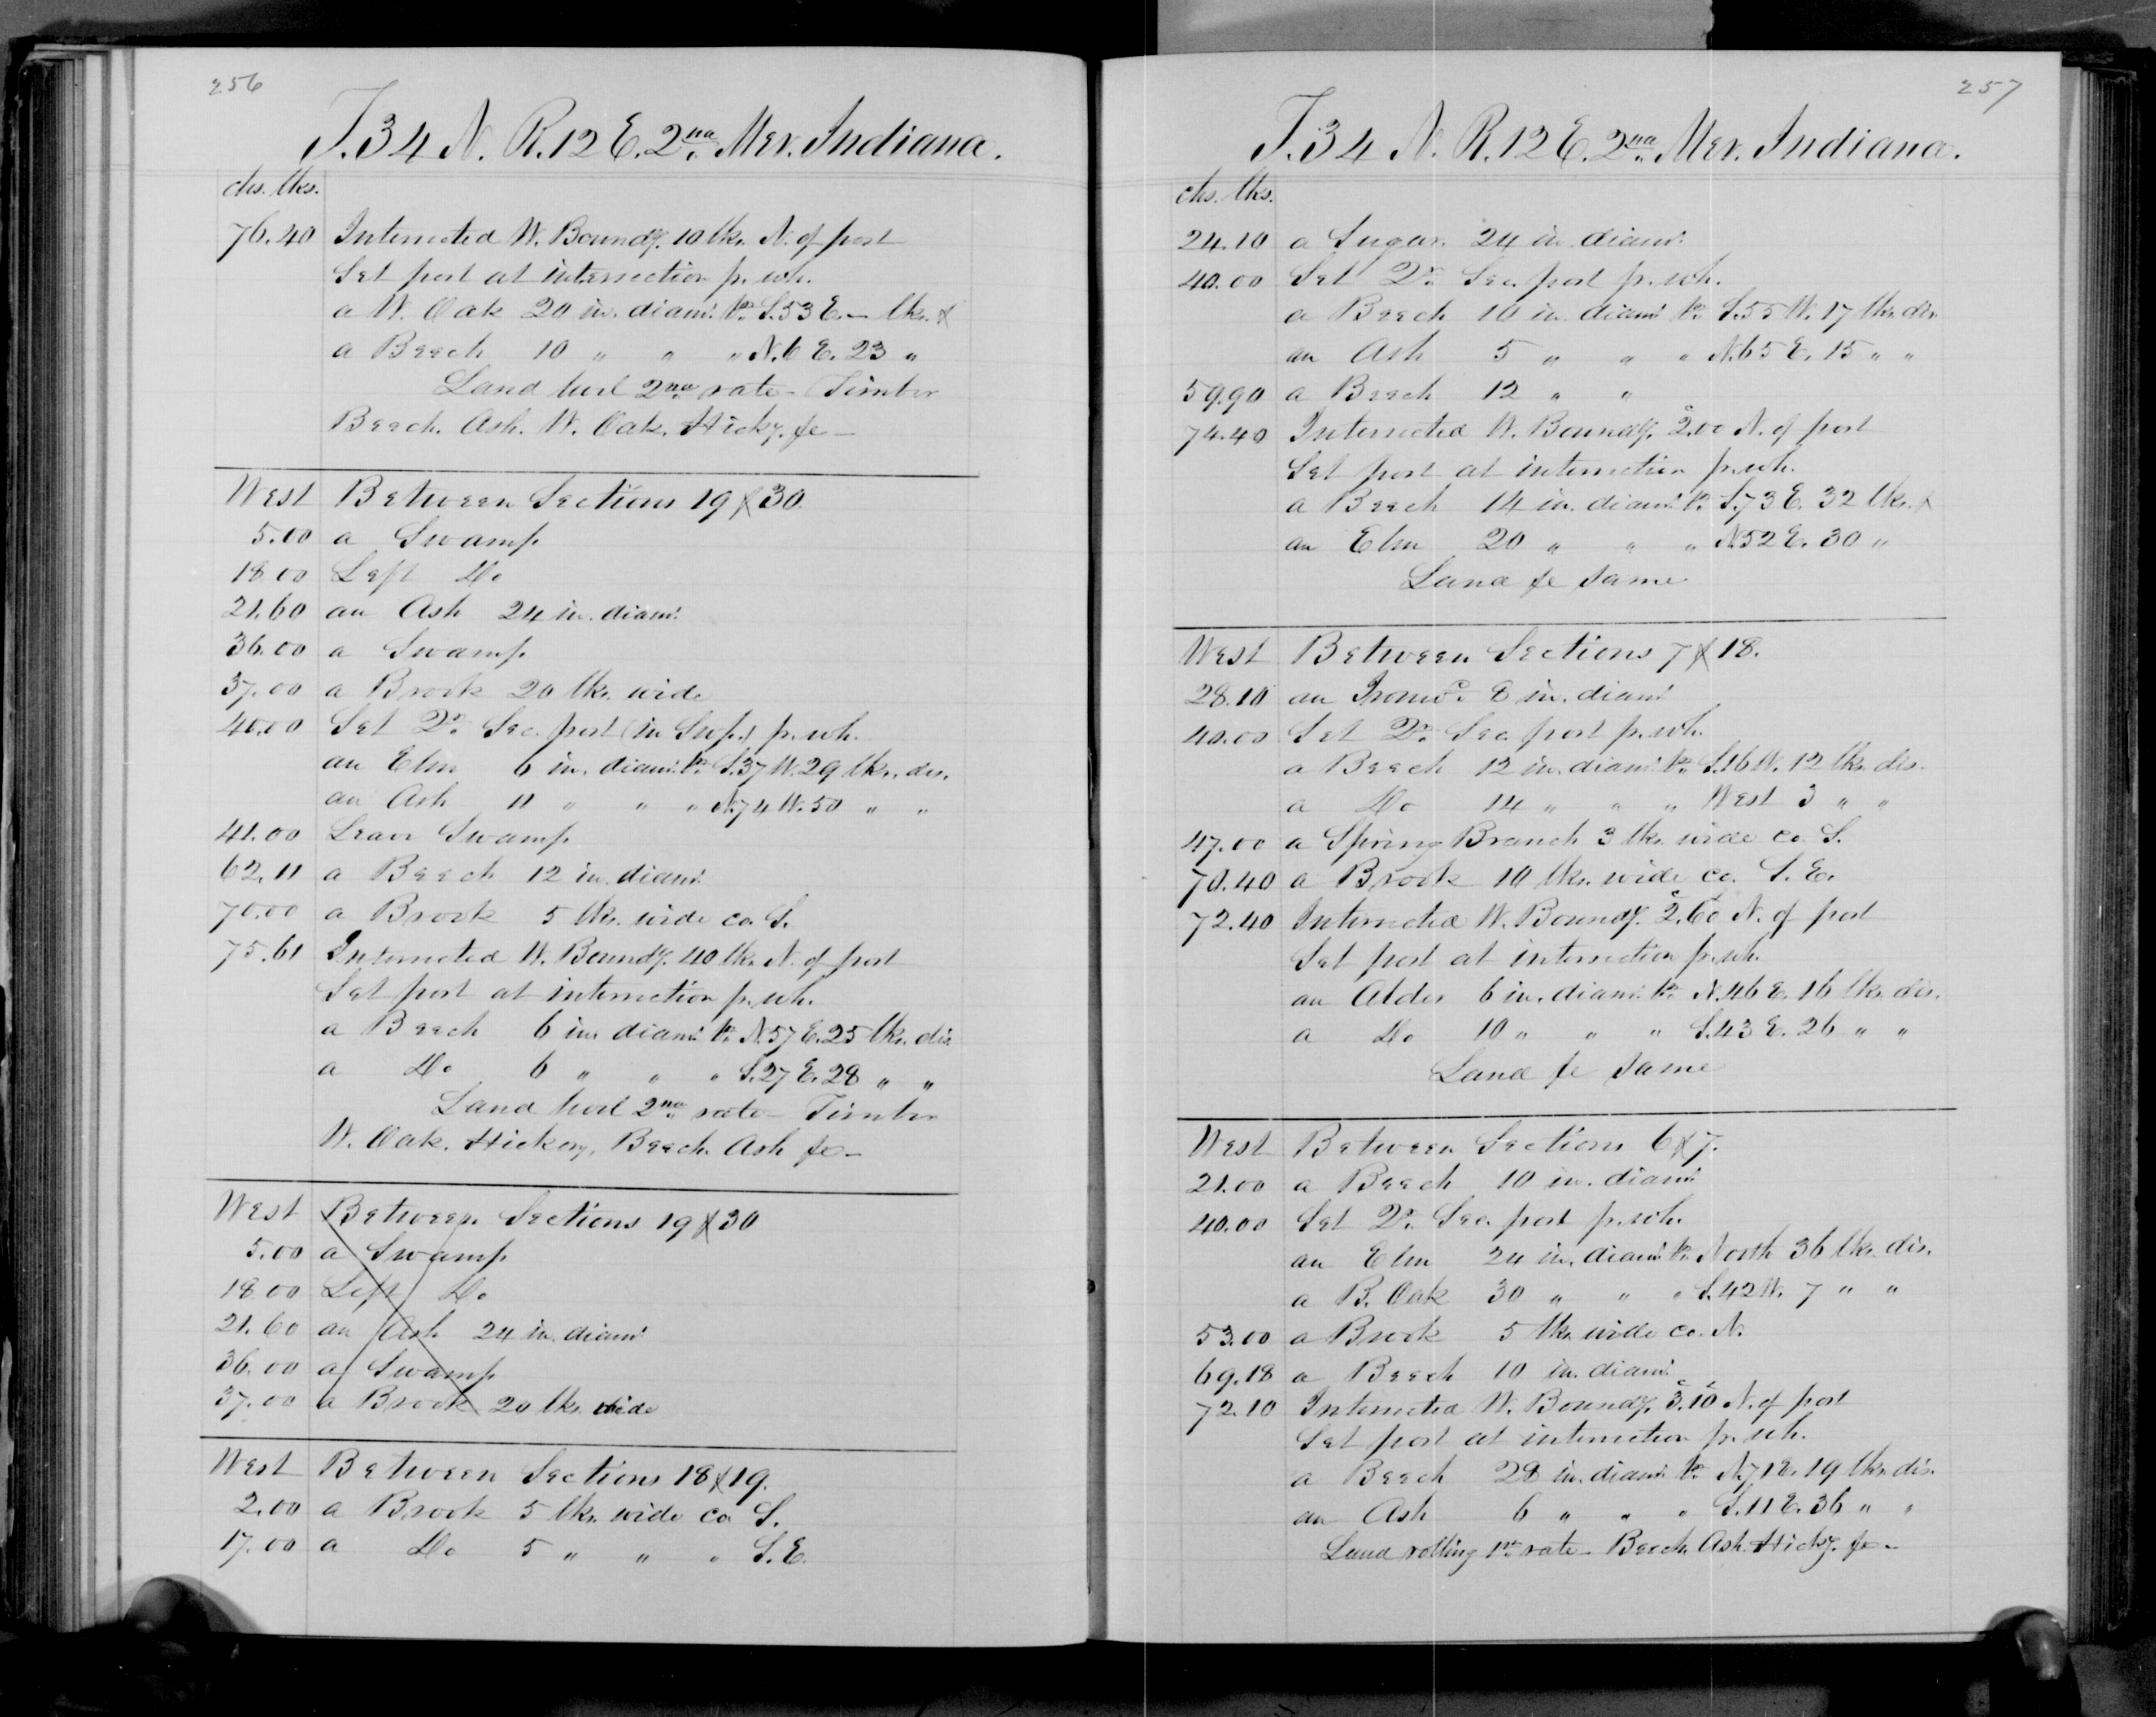 256
T. 34 N. R. 12 E. 2nd Mer. Indiana.
chs. lks.
76.40 Intersected W. Boundy. 10 lks. N. of post
Set post at intersection fr. wh.
a W. Oak 20 in. diamr. br. S. 53 E. — lks. &
a Beech 10 " " " N. 6 E. 23 "
Land level 2nd rate - Timber
Beech. Ash. W. Oak. Hicky. &c -
West Between Sections 19 & 30.
5.00 a Swamp
18.00 Left Do
21.60 an Ash 24 in. diamr.
36.00 a Swamp
37.00 a Brook 20 lks. wide
40.00 Set Qr. Sec. post (in Swp.) fr. wh.
an Elm 6 in. diamr. br. S. 37 W. 29 lks. dis.
an Ash 11 " " " N. 74 W. 50 " "
41.00 Leave Swamp
62.11 a Beech 12 in. diamr.
70.00 a Brook 5 lks. wide co. S.
75.61 Intersected W. Boundy. 40 lks. N. of post
Set post at intersection fr. wh.
a Beech 6 in. diamr. br. N. 57 E. 25 lks. dis.
a Do 6 " " " S. 27 E. 28 " "
Land level 2nd rate - Timber
W. Oak. Hickory, Beech. Ash &c -
West Between Sections 19 & 30
5.00 a Swamp
18.00 Left Do
21.60 an Ash 24 in. diamr
36.00 a Swamp
37.00 a Brook 20 lks. wide
West Between Sections 18 & 19.
2.00 a Brook 5 lks. wide co S.
17.00 a Do 5 " " " S. E.
257
T. 34 N. R. 12 E. 2nd Mer. Indiana.
chs. lks.
24.10 a Sugar. 24 in. diamr.
40.00 Set Qr. Sec. post fr. wh.
a Beech 10 in. diamr. br. S. 55 W. 17 lks. dis.
an Ash 5 " " " N. 65 E. 15 " "
59.90 a Beech 12 " "
74.40 Intersected W. Boundy. 2.00 N. of post
Set post at intersection fr. wh.
a Beech 14 in. diamr. br. S. 73 E. 32 lks. &
an Elm 20 " " " N. 52 E. 30 "
Land &c same
West Between Sections 7 & 18.
28.10 an Ironwd. 8 in. diamr.
40.00 Set Qr. Sec. post fr. wh.
a Beech 12 in. diamr. br. S. 16 W. 12 lks. dis.
a Do 14 " " " West 3 " "
47.00 a Spring Branch 3 lks. wide co. S.
70.40 a Brook 10 lks. wide co. S. E.
72.40 Intersected W. Boundy. 2.60 N. of post
Set post at intersection fr. wh.
an Alder 6 in. diamr. br. N. 46 E. 16 lks. dis.
a Do 10 " " " S. 43 E. 26 " "
Land &c same
West Between Sections 6 & 7.
21.00 a Beech 10 in. diamr.
40.00 Set Qr. Sec. post fr. wh.
an Elm 24 in. diamr. br. North 36 lks. dis.
a B. Oak 30 " " " S. 42 W. 7 " "
53.00 a Brook 5 lks. wide co. N.
69.18 a Beech 10 in. diamr.
72.10 Intersected W. Boundy. 3.10 N. of post
Set post at intersection fr. wh.
a Beech 28 in. diamr. br. N. 71 E. 19 lks. dis.
an Ash 6 " " " S. 11 E. 36 " "
Land rolling 1st. rate - Beech. Ash. Hicky. &c -